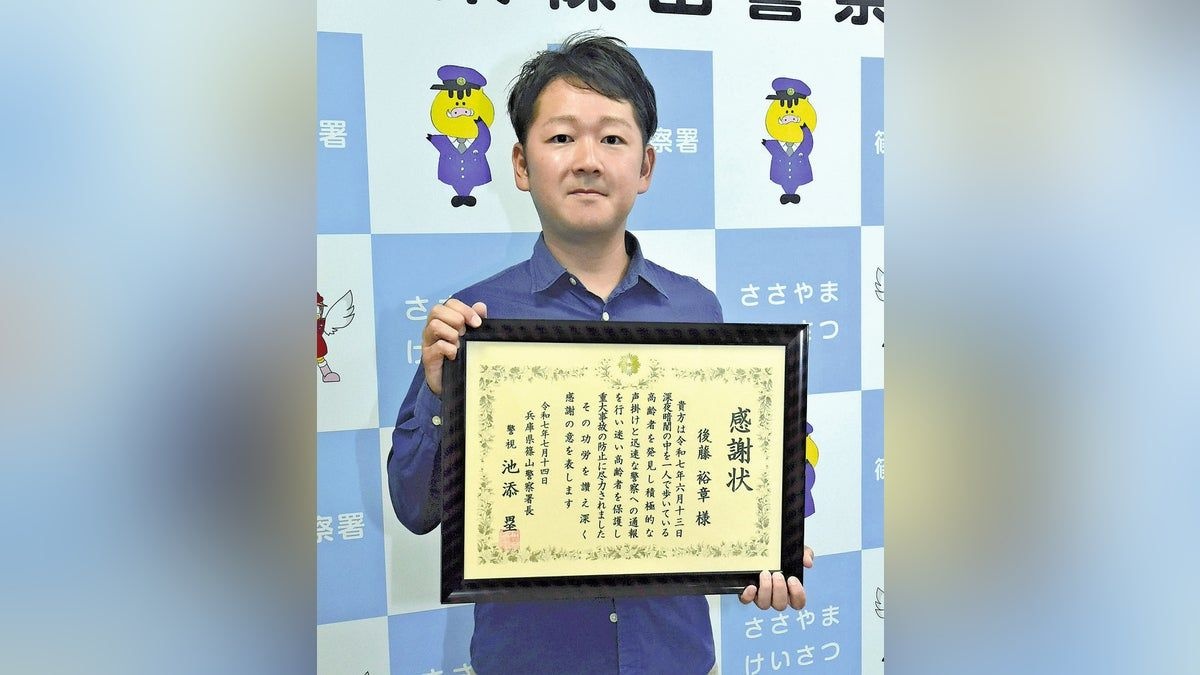 篠山警察
察署
察署
篠
ささやま
さつ
ささ
け
感謝状
後藤裕章様
貴方は令和七年六月十三日
深夜暗闇の中を一人で歩いている
高齢者を発見し積極的な
声掛けと迅速な警察への通報
を行い迷い高齢者を保護し
重大事故の防止に尽力されました
その功労を讃え深く
感謝の意を表します
令和七年七月十四日
兵庫県篠山警察署長
警視 池添 塁
察署
篠
ささやま
けいさつ
ささ